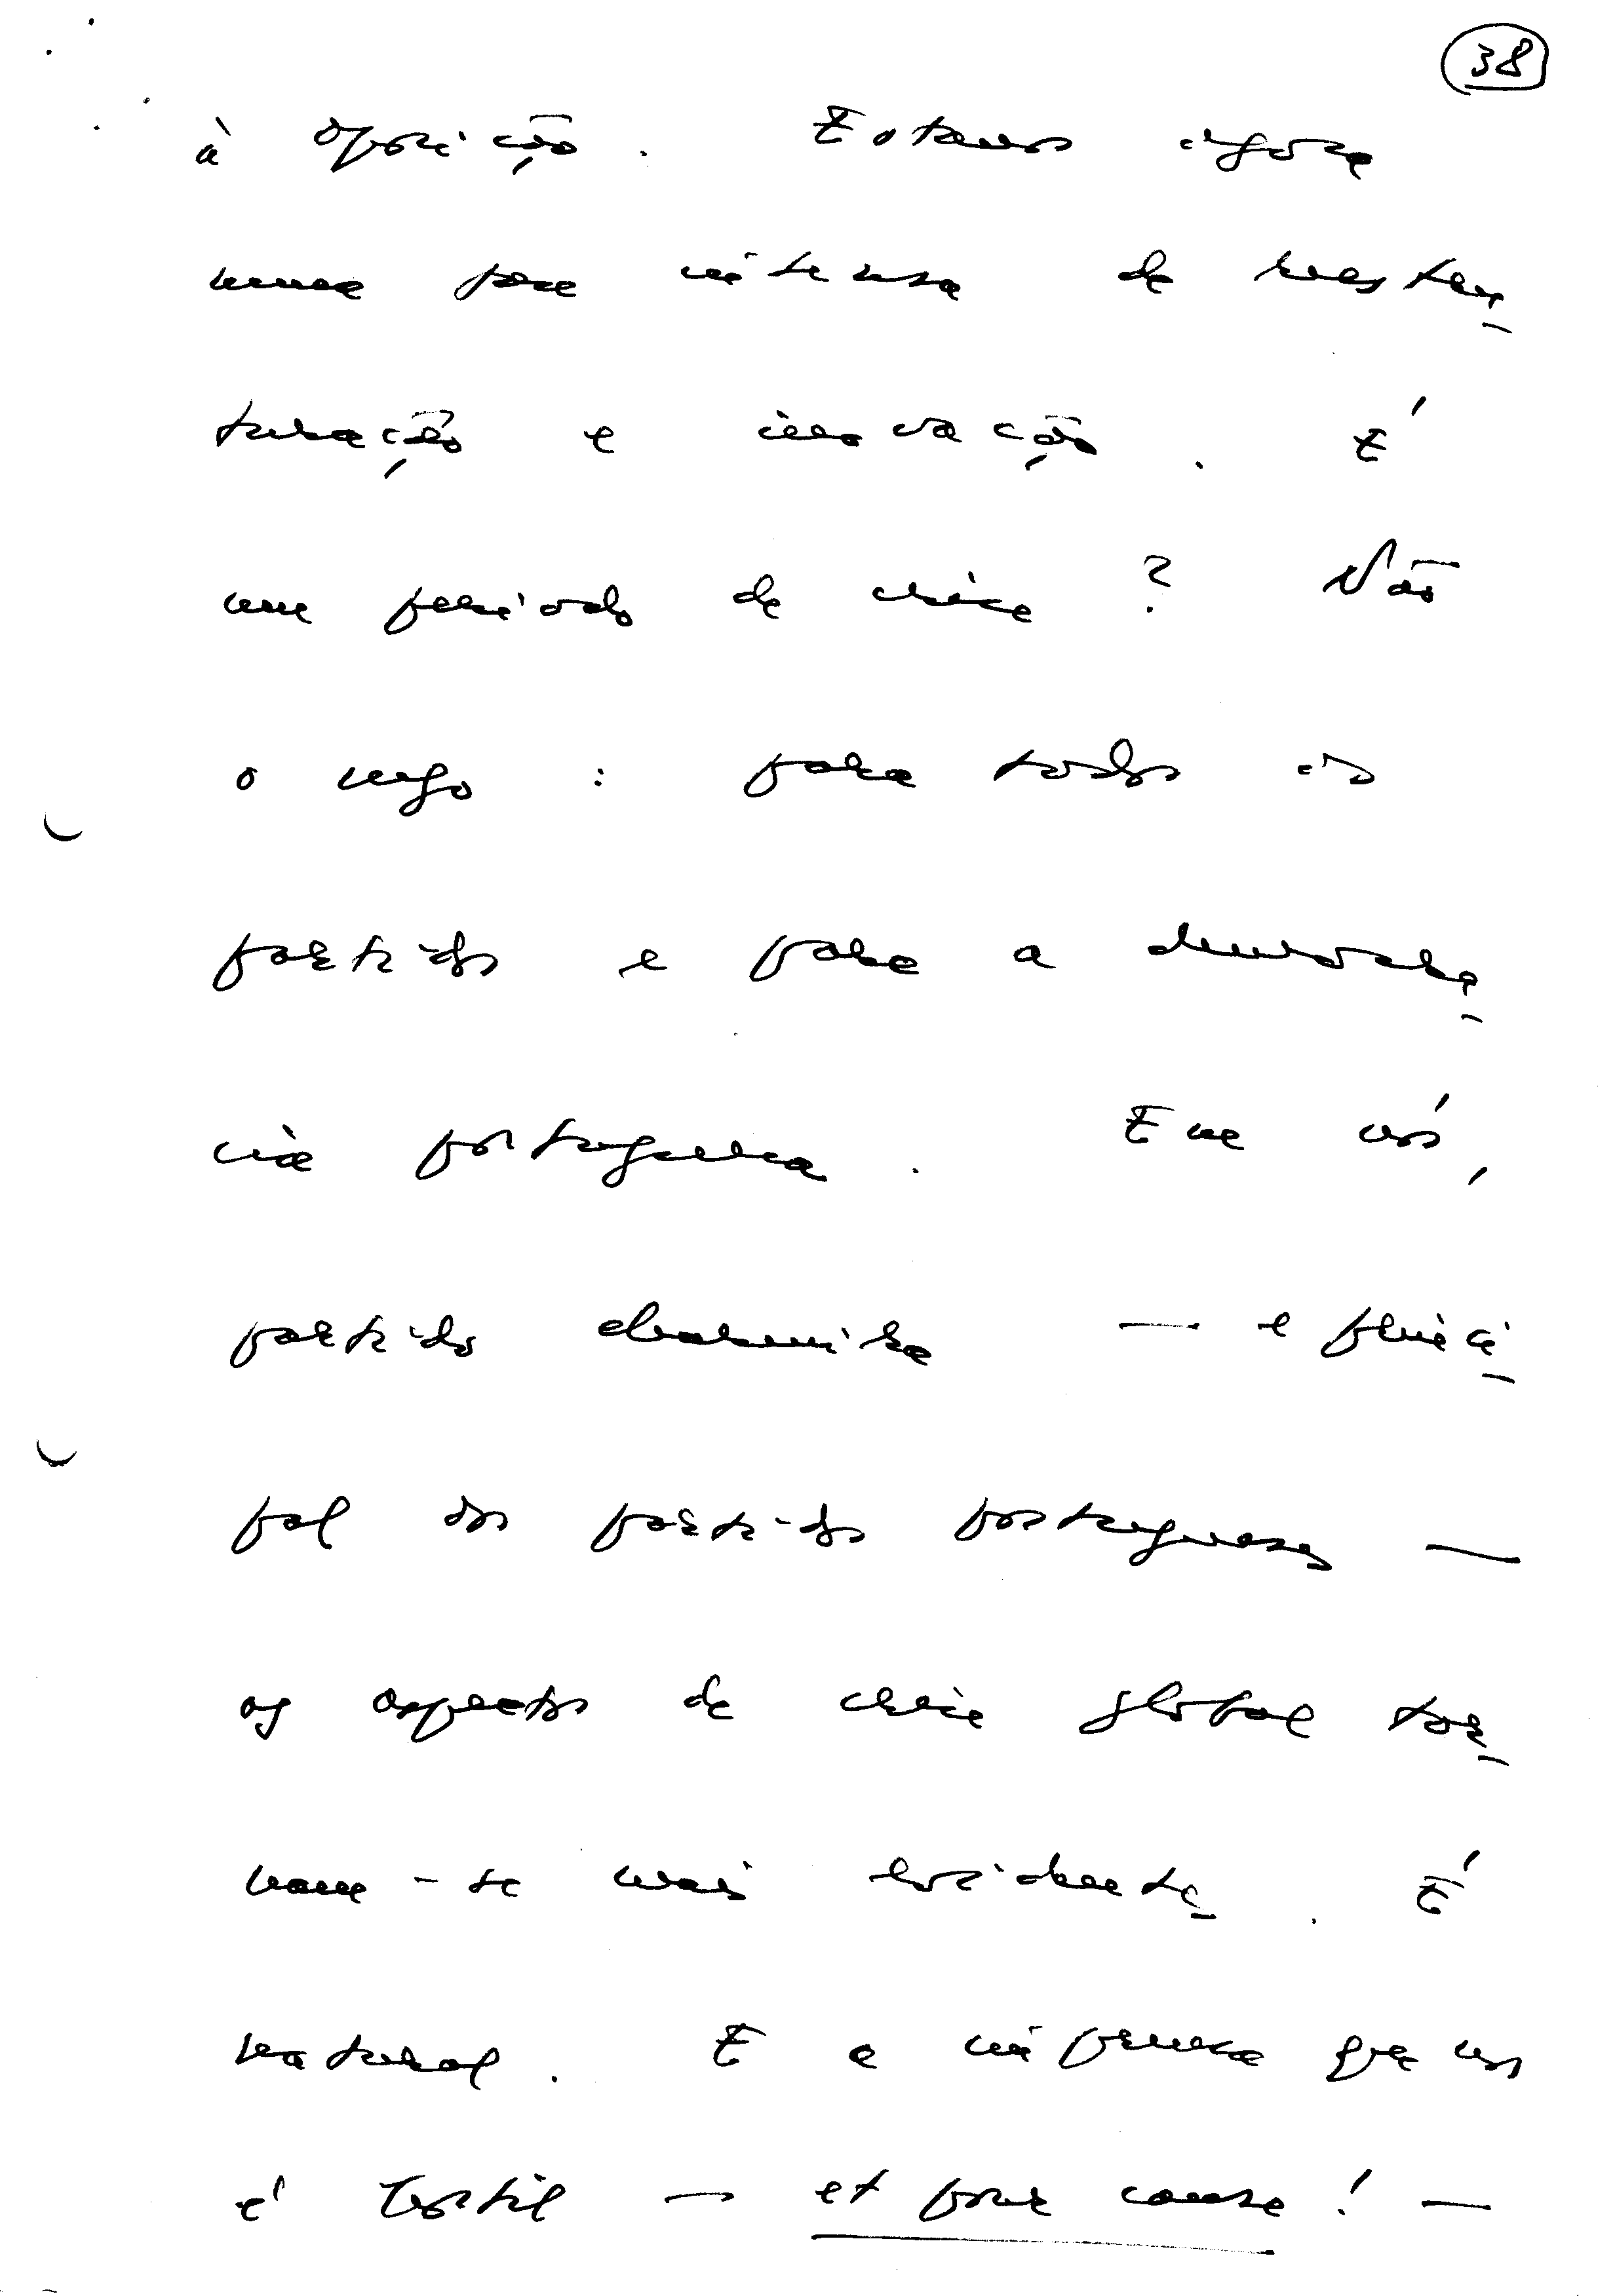 38
à oposição. Estamos agora
numa fase intensa de reestru-
turação e inovação. É
um período de crise? Não
o nego: para todos os
partidos e para a democra-
cia portuguesa. Em nós,
partido charneira — e princi-
pal dos partidos portugueses —
os aspectos de crise global tor-
nam-se mais evidentes. É
natural. E a imprensa que nos
é hostil — et pour cause! —